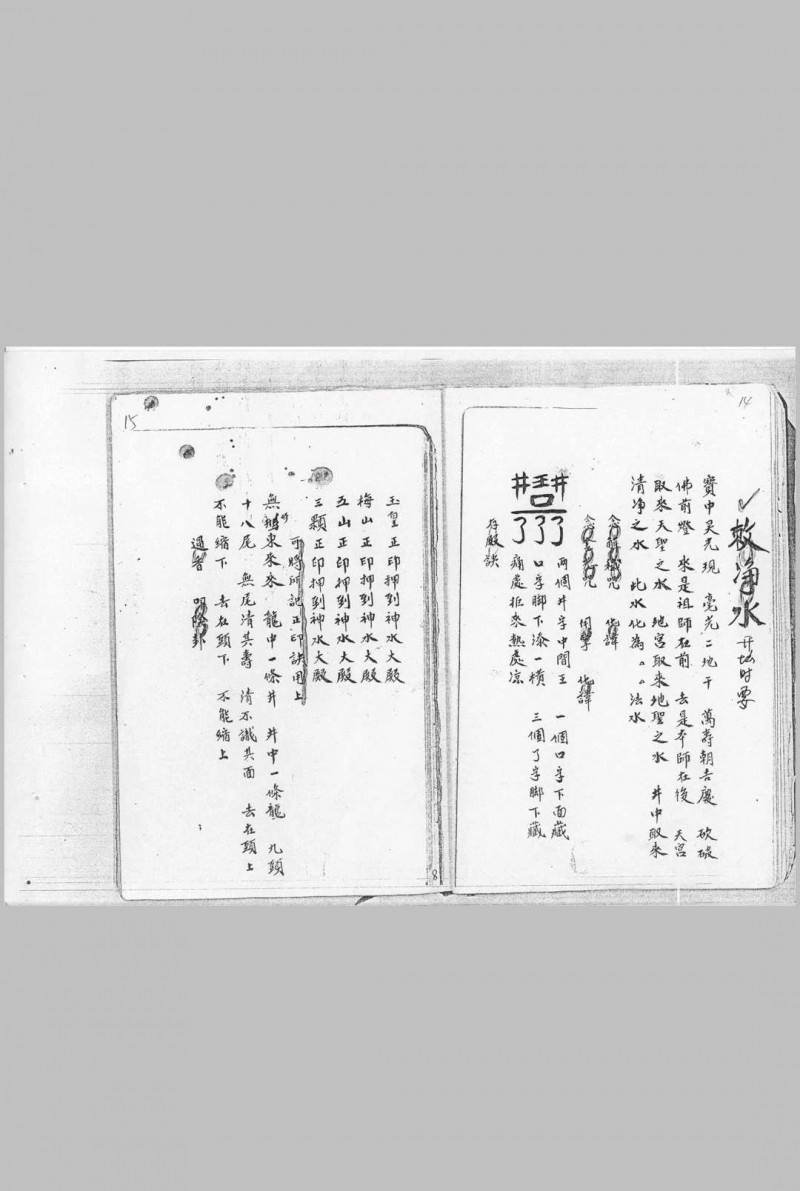 14
敕净水 开坛时要
寶中灵光现 毫光二地干 萬壽朝去慶 砍破
佛前燈 來是祖師在前 去是本師在後 天宫
取來天聖之水 地宫取來地聖之水 井中取來
清净之水 此水化為〃〃法水
化諱
化諱
兩個井字中間王 一個口字下面藏
口字脚下添一橫 三個了字脚下藏
痛處拒來熱處凉
存殿訣
15
玉皇正印押到神水大殿
梅山正印押到神水大殿
五山正印押到神水大殿
三顆正印押到神水大殿
可將所記正印訣用上
無 東來來 龍中一條井 井中一條龍 九頭
十八尾 無尾清其壽 清不識其面 去在頭上
不能縮下 去在頭下 不能縮上
陰卦
8